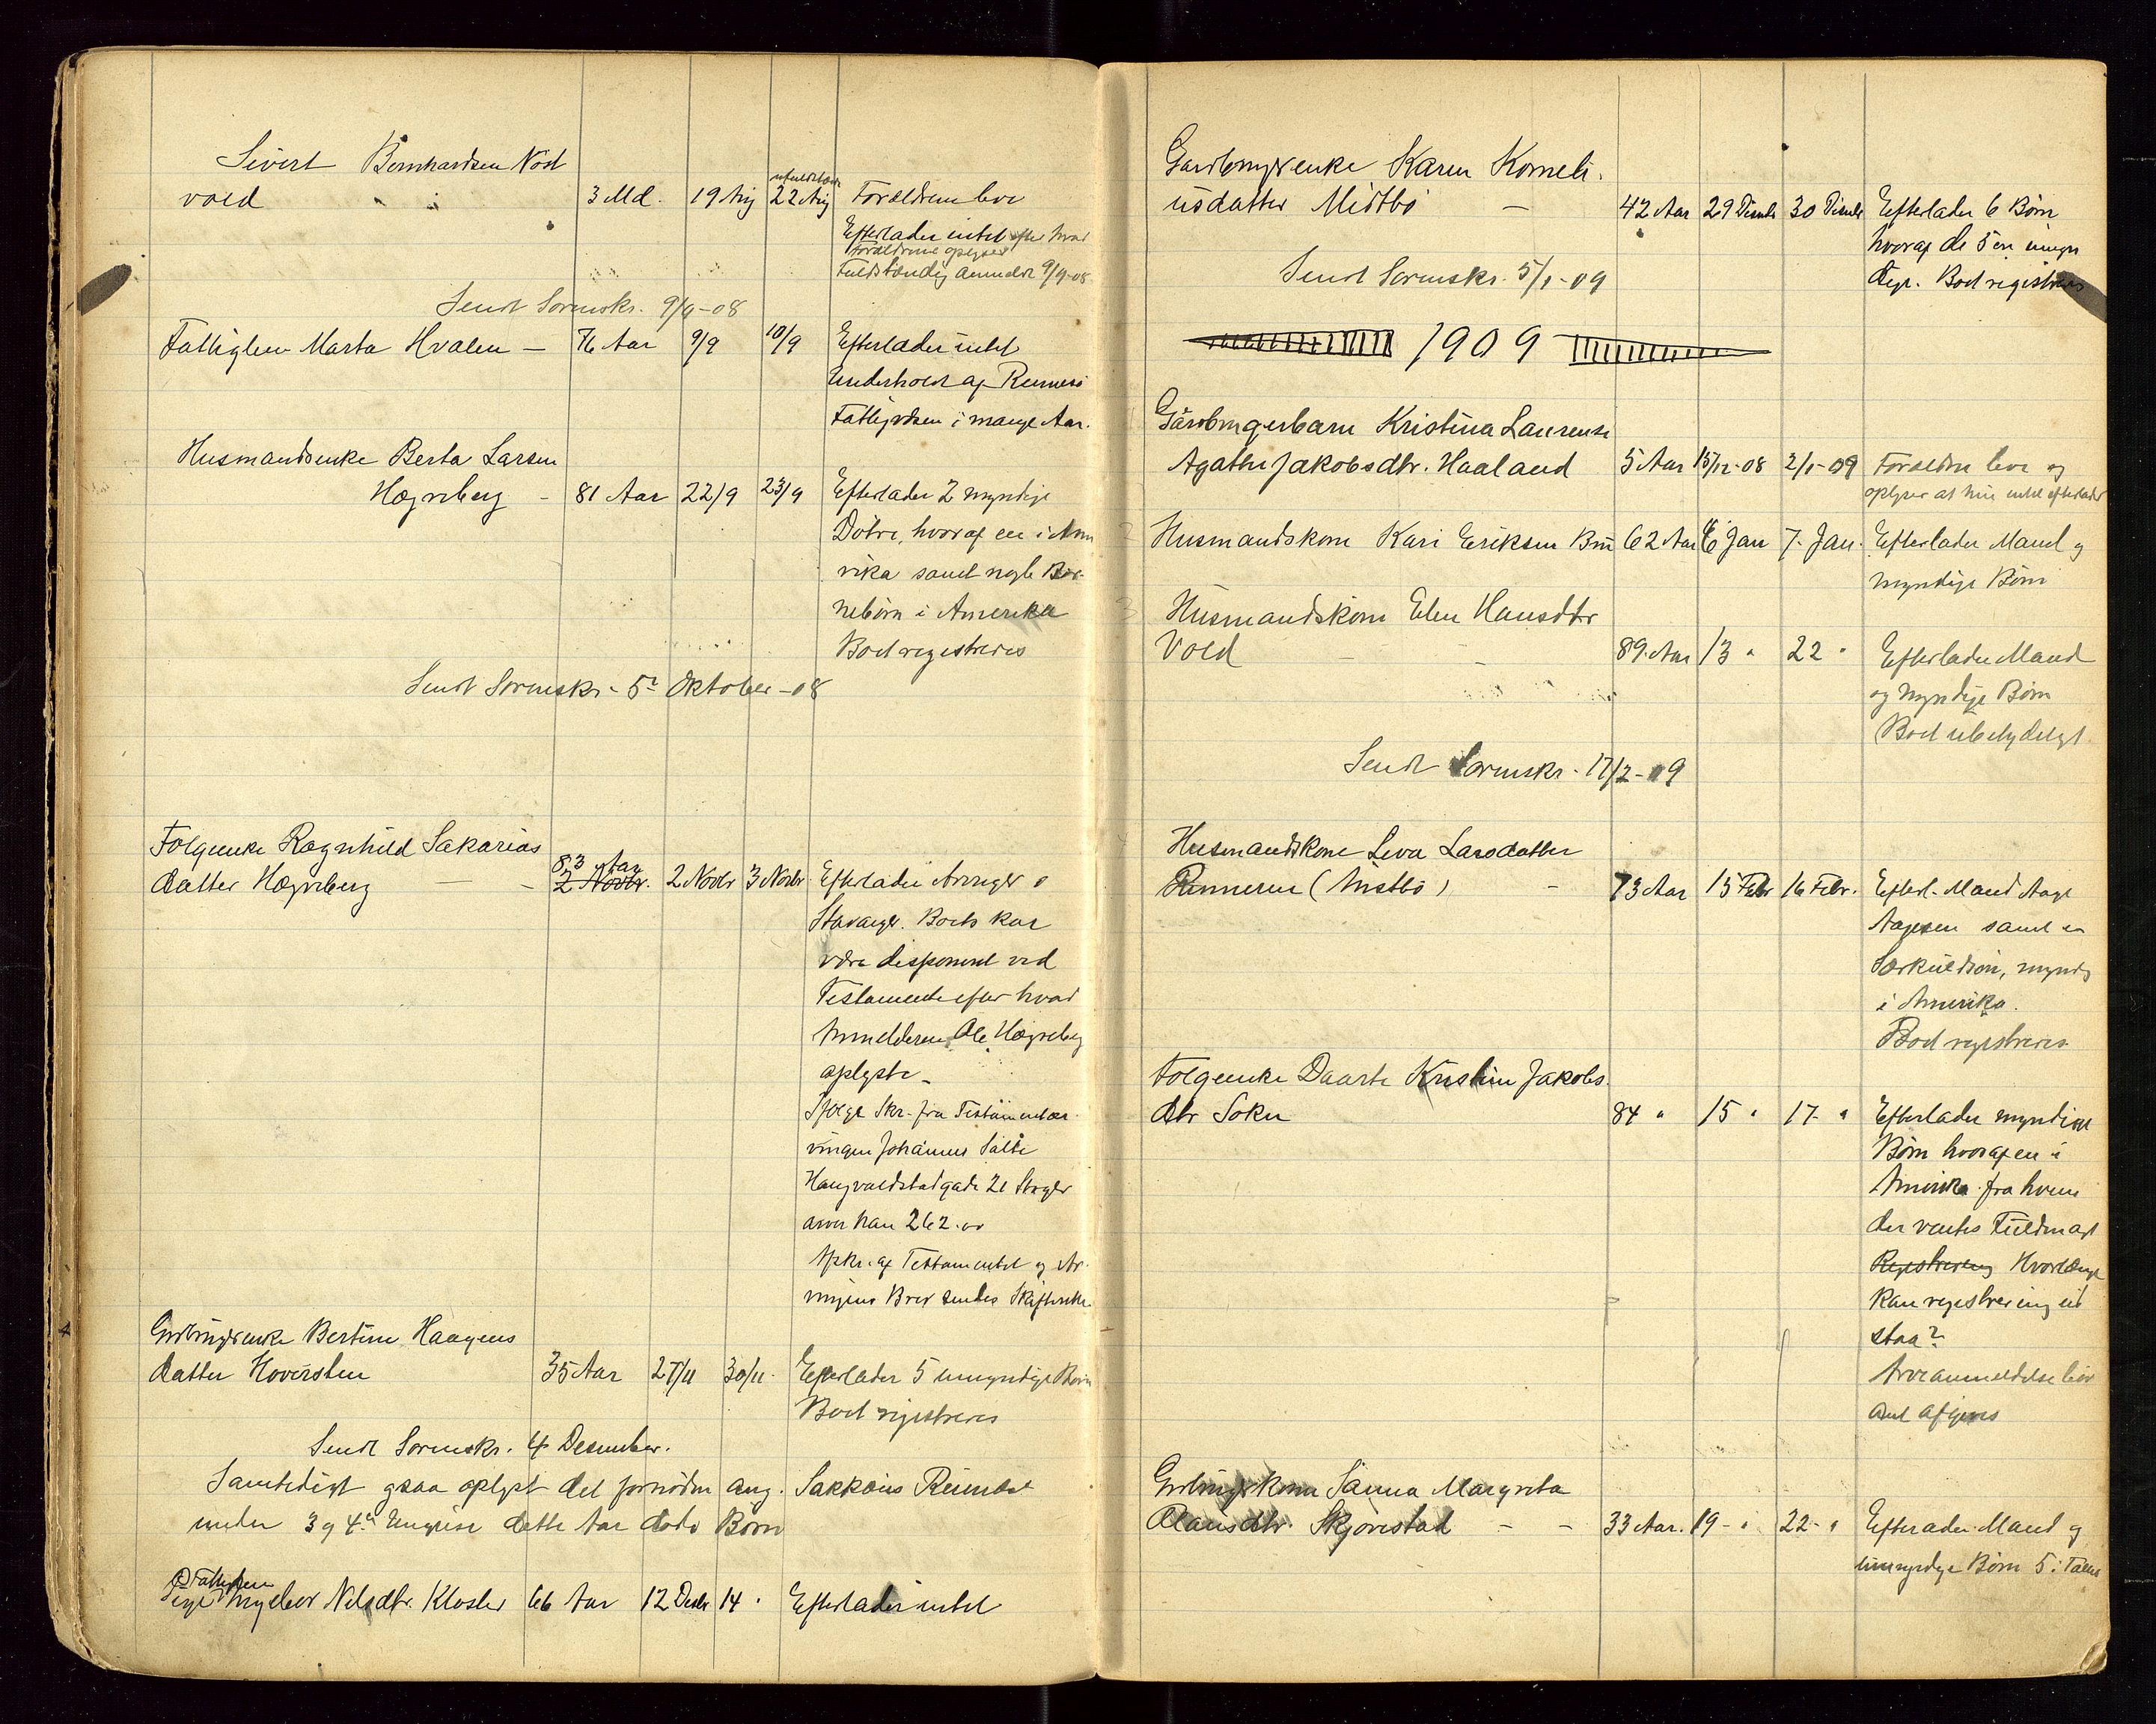 Sivert Bernhardsen Nod
vold 3 Md. 19 Aug 22 Aug Forældrene leve
Efterlader intet efter hvad
Forældrene oplyser
Fuldstændig anmeldt 9/9-08
Sendt Sorenskr. 9/9-08
Fattiglem Marta Hvalen — 76 Aar 9/9 10/9 Efterlader intet
Underholdt af Rennesø
Fattigvæsen i mange Aar.
Husmandsenke Berta Larsen
Hegreberg - 81 Aar 22/9 23/9 Efterlader 2 myndige
Døtre, hvoraf en i Ame
rika samt nogle Bør-
nebørn i Amerika
Boet registreres
Sendt Sorenskr. 5te Oktober -08
Folgeenke Ragnhild Sakarias 83 Aar
datter Hegreberg — - 2 Novbr. 2 Novbr 3 Novbr Efterlader Arvinger i
Stavanger. Boets kar
være disponeret ved
Testamente efter hvad
Anmelderen Ole Hegreberg
oplyste -
Ifølge Skr. fra Testamentar
vingen Johannes Salte
Haugvaldstadgade 21 Stvgr
arver han 262.00
Afskr. af Testamentet og Ar
vingens Brev sendes Skifteretten
Grdbrugerenke Bertine Haagens
datter Hoversten 35 Aar 27/11 30/11. Efterlader 5 umyndige Børn
Boet registreres
Sendt Sorenskr. 4 Desember.
Samtidigt gsaa oplyst det fornødne ang. Sakkaris Reimes
under 3 og 4de dette Aar døde Børn
Fattiglem
Nilsdtr. Kloster 66 Aar 12 Desbr 14 " Efterlader intet
Gardbrugerenke Karen Korneli.
usdatter Midtbø — 42 Aar 29 Desember 30 Desember Efterlader 6 Børn
hvoraf de 5 er umyn
dige. Boet registreres
Sendt Sorenskr. 5/1-09
1909
1 Gårdbrugerbarn Kristina Laurense
Agathe Jakobsdtr. Haaland 5 Aar 15/12-08 2/1-09 Forældre leve og
oplyser at hun intet efterlader
2 Husmandskone Kari Eriksen Bru 62 Aar 6 Jan 7. Jan. Efterlader Mand og
myndige Børn
3 Husmandskone Elen Hansdtr
Vold — - 89 Aar 13 " 22 " Efterlader Mand
og myndige Børn
Boet ubetydeligt
Sendt Sorenskr. 17/2-09
Husmandskone Siva Larsdatter
Renneren (Austbø) - 73 Aar 15 Febr 16 Febr. Efterl. Mand Aage
Aagesen samt en
Særkuldsøn, myndig
i Amerika.
Boet registreres
Folgeenke Daarte Kristine Jakobs
dtr Sokn 84 " 15 " 17- " Efterlader myndige
Børn hvoraf en i
Amerika fra hvem
der ventes Fuldmagt
Registrering Hvorlænge
kan registrering ud
staa?
Arveanmeldelse blir
at afgives
Grdbrugerkone Sanna Margreta
Olausdtr. Skjørestad - - 33 Aar. 19- " 22- " Efterlader Mand og
umyndige Børn 5 i Tallet